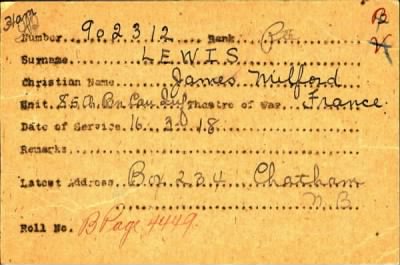 Number 902312 Rank Pte
Surname LEWIS
Christian Name James Milford
Unit 85th Bn Can Inf Theatre of War France
Date of Service 16.3.18
Remarks
Latest Address Box 234 Chatham
N.B.
Roll No. B Page 4449.